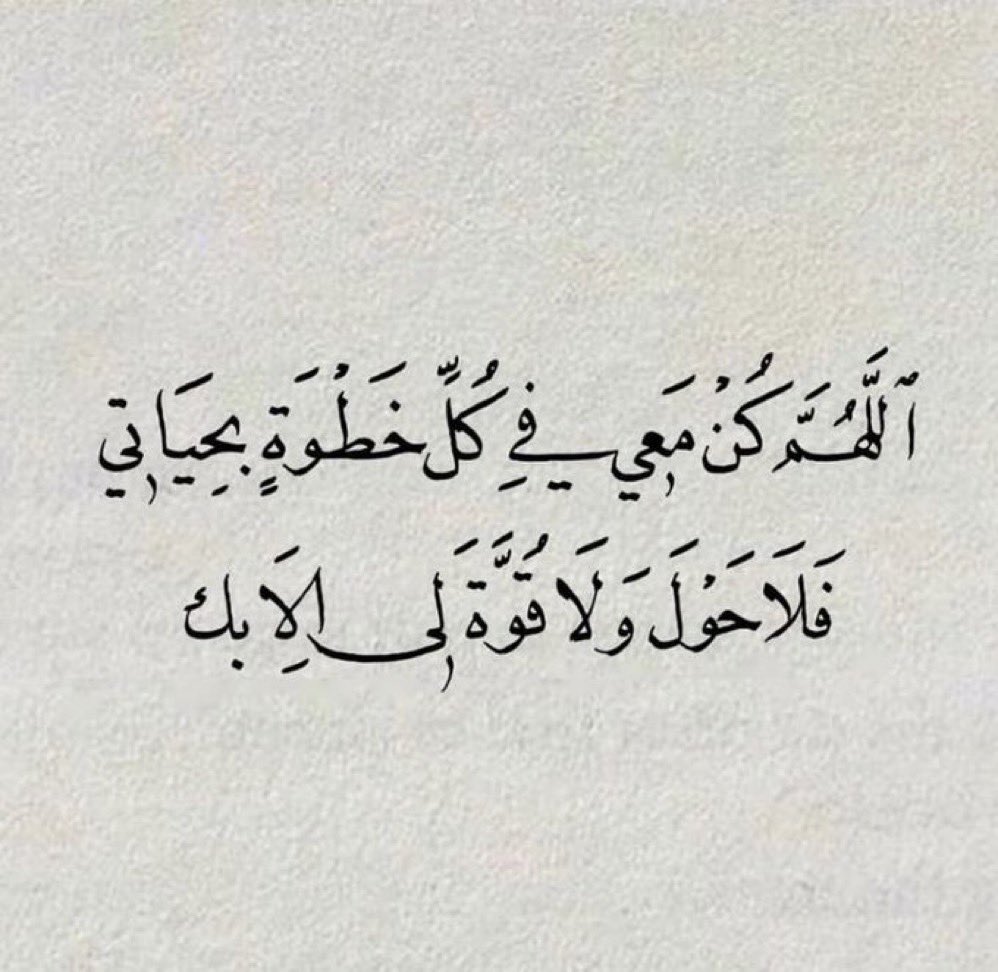 ٱللَّهُمَّ كُنْ مَعِي فِي كُلِّ خَطْوَةٍ بِحِيَاتِي
فَلَا حَوْلَ وَلَا قُوَّةَ لِي الِا بك